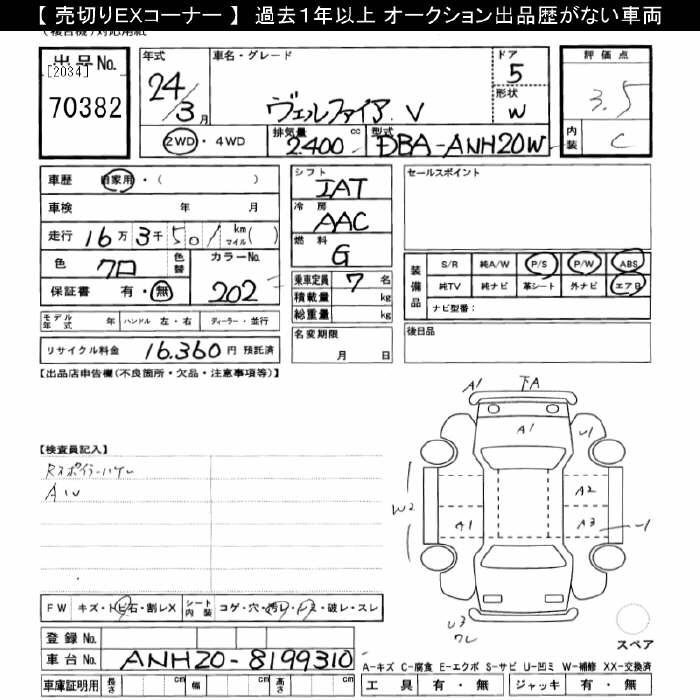 【 売切りEXコーナー 】 過去１年以上 オークション出品歴がない車両
（複合機）対応用紙
出品No.
[2034]
70382
年式
24/3月
車名・グレード
ヴェルファイア V
ドア
5
形状
W
評価点
3.5
内装
C
2WD・4WD
排気量 2400 cc
型式 DBA-ANH20W
車歴 自家用・（ ）
車検 年 月
走行 16万3千501 km マイル( )
色 クロ
色替
カラーNo.
202
保証書 有・無
モデル年式 年 ハンドル 左・右 ディーラー・並行
リサイクル料金 16.360円 預託済
シフト
IAT
冷房
AAC
燃料
G
乗車定員 7 名
積載量 kg
総重量 kg
名変期限
月 日
セールスポイント
装備品
S/R 純A/W P/S P/W ABS
純TV 純ナビ 革シート 外ナビ エアB
ナビ型番：
後日品
【出品店申告欄(不良箇所・欠品・注意事項等)】
【検査員記入】
Rスポイラーハゲし
AW
A1 下A
A1
U1
W2
A2
A1
A3
U3
ワレ
スペア
FW キズ・トビ石・割レX
シート内装 コゲ・穴・汚レ・スミ・破レ・スレ
登録No.
車台No. ANH20-8199310
車庫証明用 長さ cm 幅 cm 高さ cm
A-キズ C-腐食 E-エクボ S-サビ U-凹ミ W-補修 XX-交換済
工具 有・無 ジャッキ 有・無